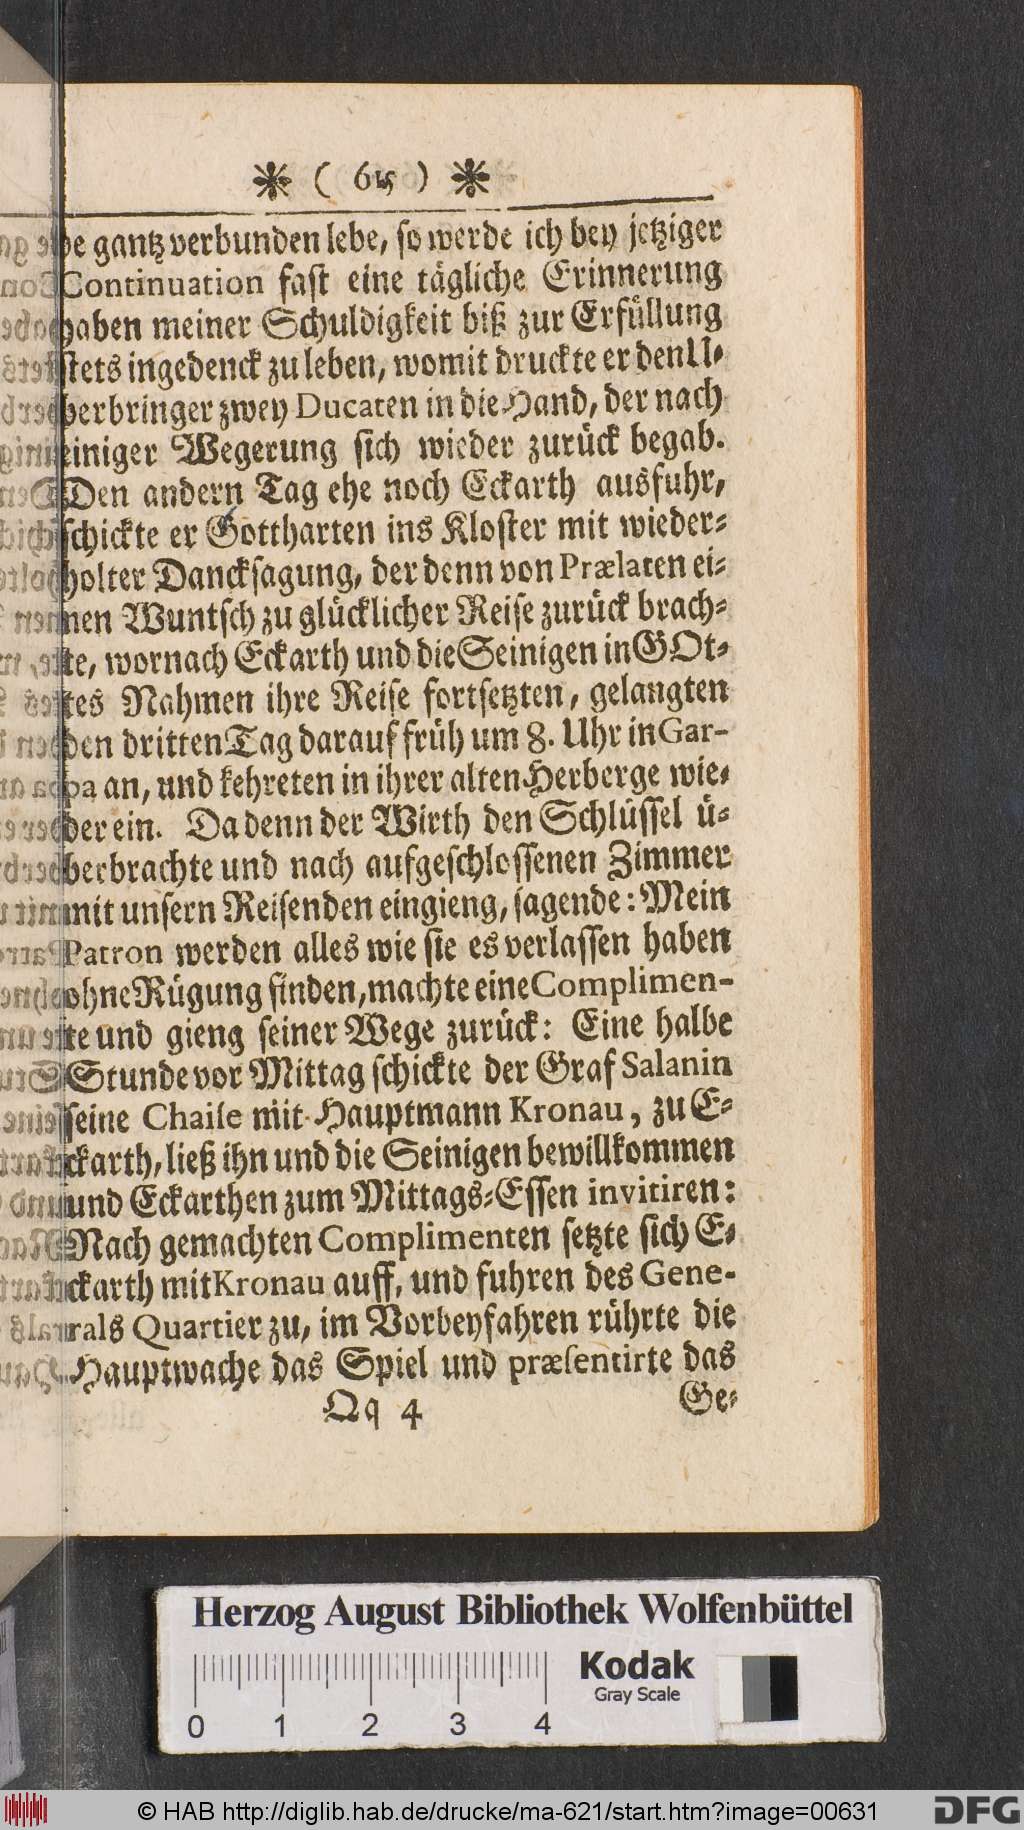 ( 615 )
be gantz verbunden lebe, so werde ich bey jetziger
Continuation fast eine tägliche Erinnerung
haben meiner Schuldigkeit biß zur Erfüllung
stets ingedenck zu leben, womit druckte er den U-
berbringer zwey Ducaten in die Hand, der nach
einiger Wegerung sich wieder zurück begab.
Den andern Tag ehe noch Eckarth ausfuhr,
schickte er Gottharten ins Kloster mit wieder-
holter Dancksagung, der denn von Prælaten ei-
nen Wuntsch zu glücklicher Reise zurück brach-
te, wornach Eckarth und die Seinigen in GOt-
tes Nahmen ihre Reise fortsetzten, gelangten
den dritten Tag darauf früh um 8. Uhr in Gar-
pa an, und kehreten in ihrer alten Herberge wie-
der ein. Da denn der Wirth den Schlüssel ü-
berbrachte und nach aufgeschlossenen Zimmer
mit unsern Reisenden eingieng, sagende: Mein
Patron werden alles wie sie es verlassen haben
ohne Rügung finden, machte eine Complimen-
te und gieng seiner Wege zurück: Eine halbe
Stunde vor Mittag schickte der Graf Salanin
seine Chaise mit Hauptmann Kronau, zu E-
ckarth, ließ ihn und die Seinigen bewillkommen
und Eckarthen zum Mittags-Essen invitiren:
Nach gemachten Complimenten setzte sich E-
ckarth mit Kronau auff, und fuhren des Gene-
rals Quartier zu, im Vorbeyfahren rührte die
Hauptwache das Spiel und præsentirte das
Qq 4 Ge-
Herzog August Bibliothek Wolfenbüttel
Kodak
Gray Scale
0 1 2 3 4
© HAB http://diglib.hab.de/drucke/ma-621/start.htm?image=00631
DFG